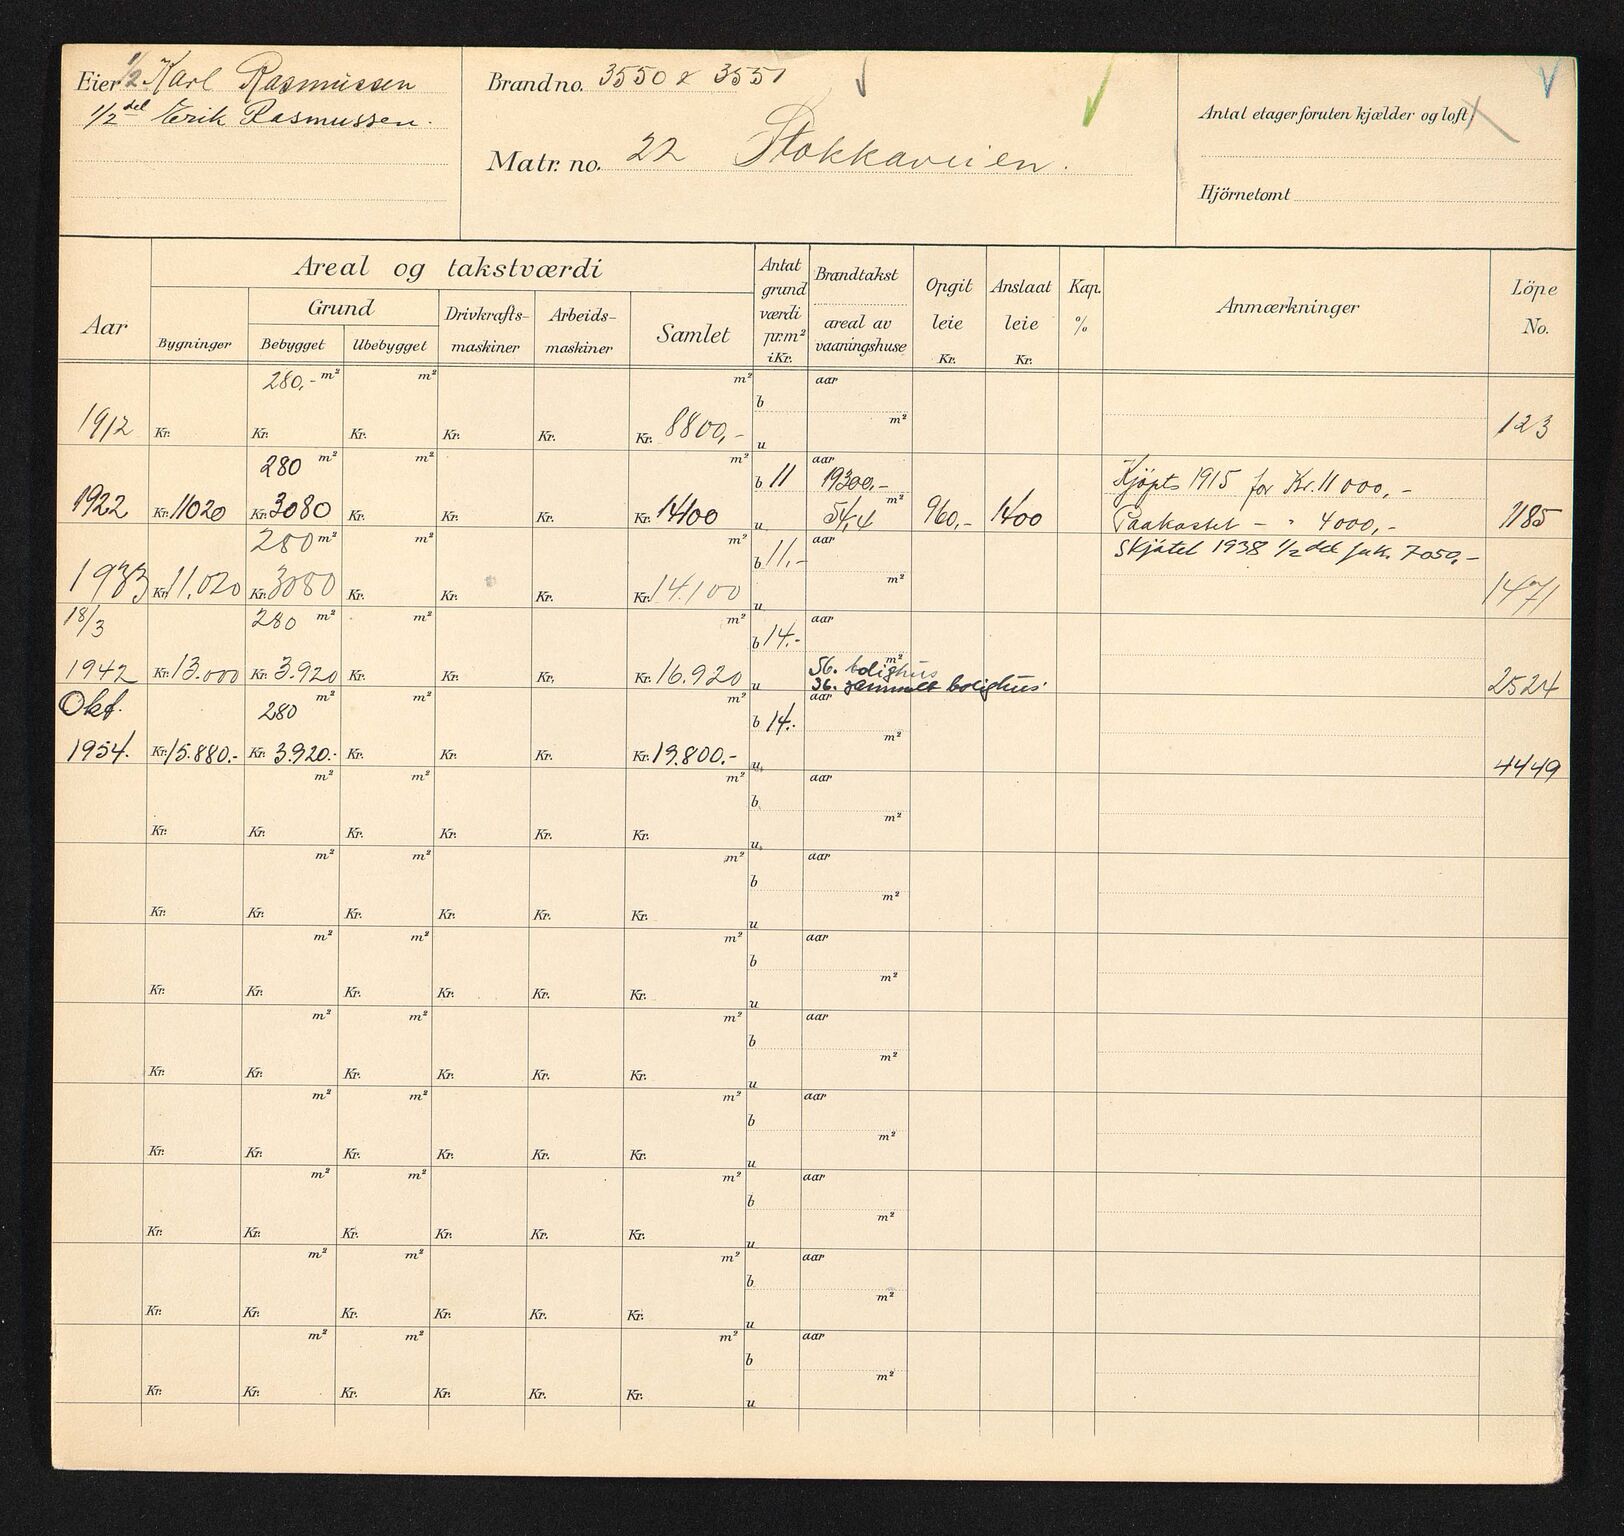 Eier 1/2 Karl Rasmussen
1/2 del Erik Rasmussen.
Brand no. 3550 & 3551
Matr. no. 22 Stokkaveien.
Antal etager foruten kjælder og loft
Hjörnetomt
Aar
Areal og takstværdi
Bygninger
Grund
Bebygget Ubebygget
Drivkrafts-
maskiner
Arbeids-
maskiner
Samlet
Antat
grund
værdi
pr.m²
i Kr.
Brandtakst
areal av
vaaningshuse
Opgit
leie
Kr.
Anslaat
leie
Kr.
Kap.
%
Anmærkninger
Löpe
No.
280,- m² m² m² aar
b m²
1912 Kr. Kr. Kr. Kr. Kr. Kr. 8800,- u 123
280 m² m² m² b 11 aar 19300,- Kjøpts 1915 for Kr. 11 000,-
1922 Kr. 11020 Kr. 3080 Kr. Kr. Kr. Kr. 14100 u 54,4 m² 960,- 1400 Paakostet - " 4000,- 1185
280 m² m² m² b 11,- aar Skjøtet 1938 1/2 del 7050,-
1933 Kr. 11.020 Kr. 3080 Kr. Kr. Kr. Kr. 14.100 u m² 1471
18/3 280 m² m² m² b 14.- aar
1942 Kr. 13.000 Kr. 3.920 Kr. Kr. Kr. Kr. 16.920 u m² 56. bolighus 2524
36. gammelt bolighus
Okt. 280 m² m² m² b 14.- aar
1954. Kr. 15.880.- Kr. 3.920.- Kr. Kr. Kr. Kr. 19.800.- u m² 4449
m² m² m² b aar
Kr. Kr. Kr. Kr. Kr. Kr. u m²
m² m² m² b aar
Kr. Kr. Kr. Kr. Kr. Kr. u m²
m² m² m² b aar
Kr. Kr. Kr. Kr. Kr. Kr. u m²
m² m² m² b aar
Kr. Kr. Kr. Kr. Kr. Kr. u m²
m² m² m² b aar
Kr. Kr. Kr. Kr. Kr. Kr. u m²
m² m² m² b aar
Kr. Kr. Kr. Kr. Kr. Kr. u m²
m² m² m² b aar
Kr. Kr. Kr. Kr. Kr. Kr. u m²
m² m² m² b aar
Kr. Kr. Kr. Kr. Kr. Kr. u m²